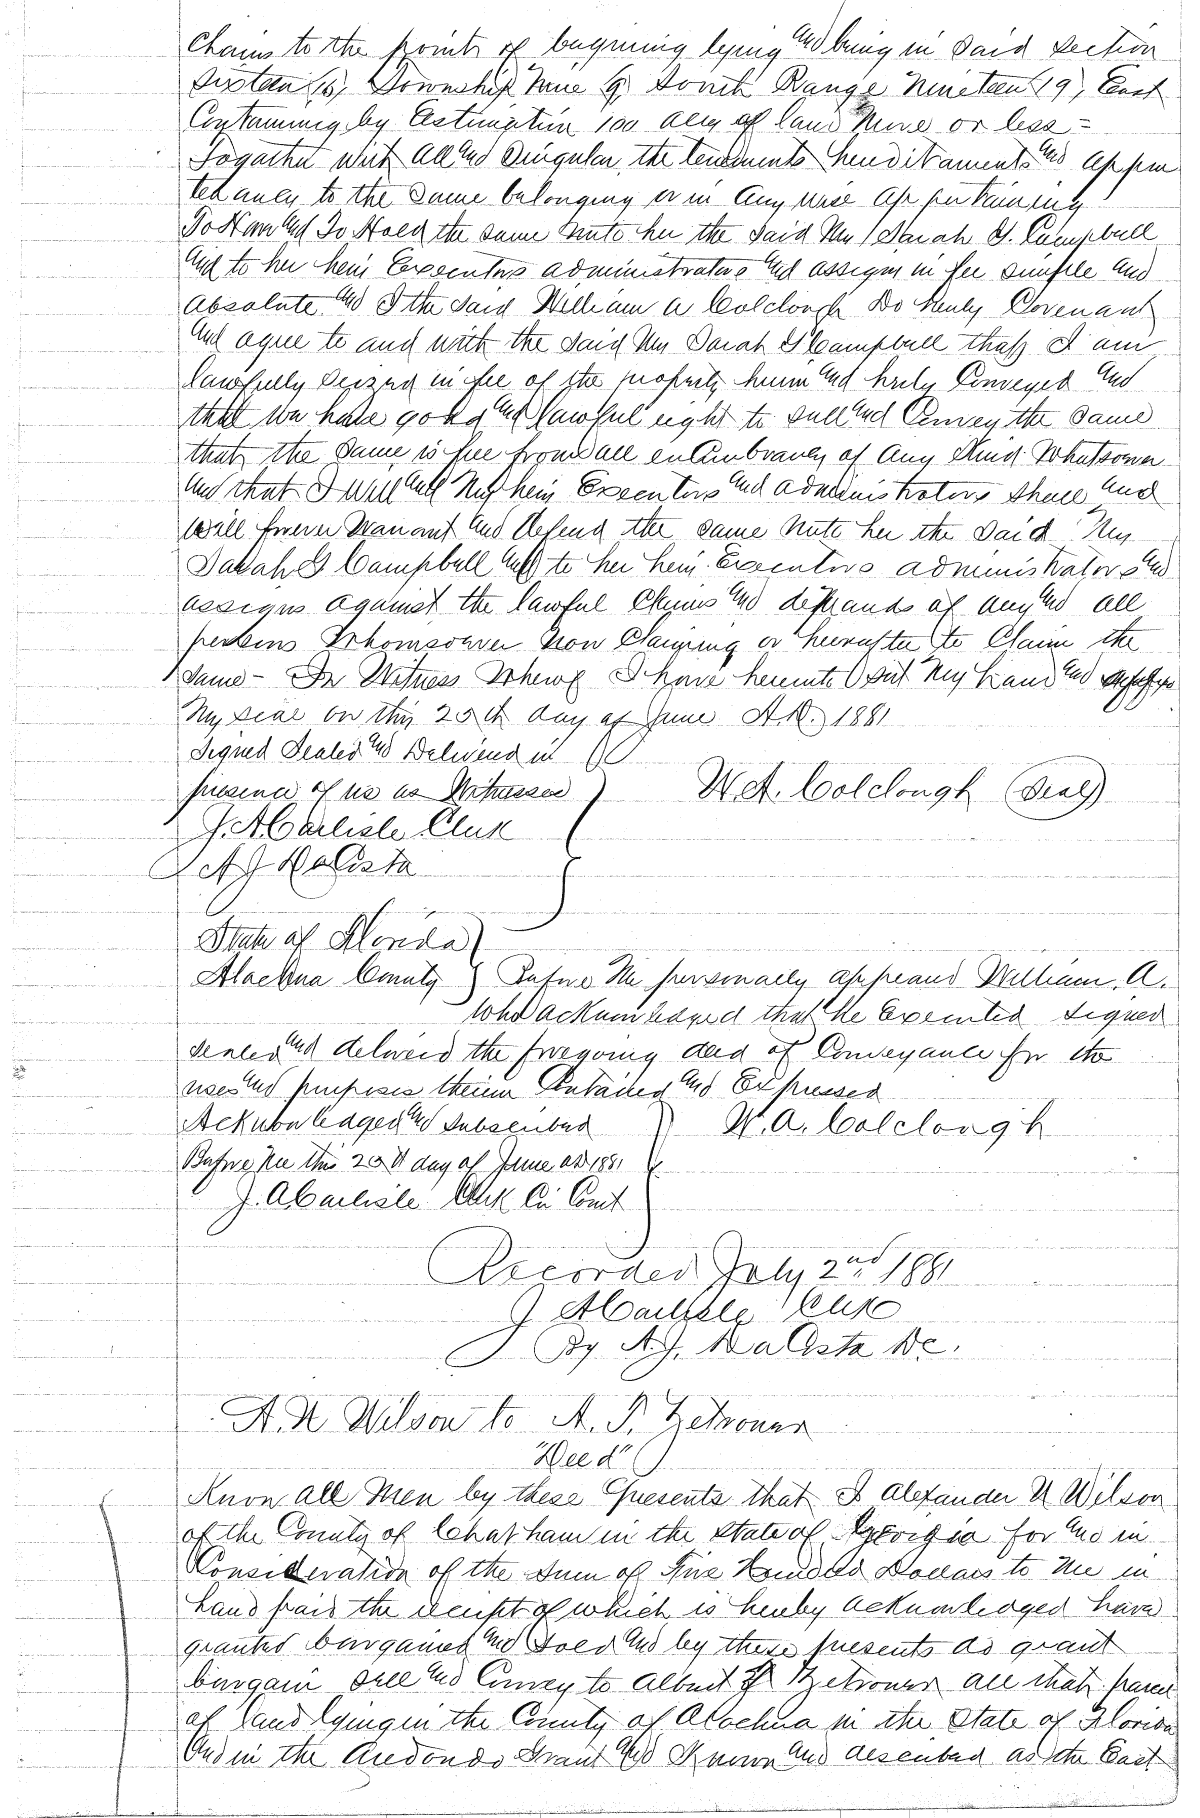 Chains to the point of begining lying and being in Said Section
Sixteen 16, Township Nine 9 South Range Nineteen 19, East
Containing by Estimation 100 acres of land More or less =
Togather with all and Singular, the tenements hereditaments and appur
tenances to the same belonging or in any wise appertaining
To Have and To Hold the same unto her the said Mrs Sarah G. Campbell
and to her heirs Executors administrators and assigns in fee simple and
absolute and I the said William A Colclough Do hereby Covenant
and agree to and with the said Mrs Sarah G Campbell that I am
lawfully seized in fee of the property herein and hereby Conveyed and
that we have good and lawful right to sell and Convey the same
that the same is free from all encumbrances of any Kind Whatsoever
and that I Will and My heirs Executors and administrators shall and
Will forever Warrant and defend the same unto her the said Mrs
Sarah G Campbell and to her heirs Executors administrators and
assigns against the lawful Claims and demands of any and all
persons Whomsoever Now Claiming or hereafter to Claim the
Same - In Witness Whereof I have hereunto set My hand and affixed
My seal on this 20th day of June A.D. 1881
Signed Sealed and Delivered in
presence of us as Witnesses W.A. Colclough (Seal)
J. A Carlisle Clerk
A J DaCosta
State of Florida
Alachua County } Before Me personally appeared William. A.
Who acknowledged that he Executed signed
sealed and delivered the foregoing deed of Conveyance for the
uses and purposes therein Contained and Expressed
Acknowledged and subscribed W. A. Colclough
Before Me this 20th day of June AD 1881
J. A. Carlisle Clerk Cir Court
Recorded July 2nd 1881
J A Carlisle Clerk
By A.J. DaCosta DC.
A. N Wilson to A. P. Zetrouer
"Deed"
Know all Men by these Presents that I Alexander N Wilson
of the County of Chatham in the State of Georgia for and in
Consideration of the Sum of Five Hundred Dollars to Me in
hand paid the receipt of which is hereby acknowledged have
granted bargained and Sold and by these presents do grant
bargain sell and Convey to Albert P Zetrouer all that parcel
of land lying in the County of Alachua in the State of Florida
and in the Arredondo Grant and Known and described as the East